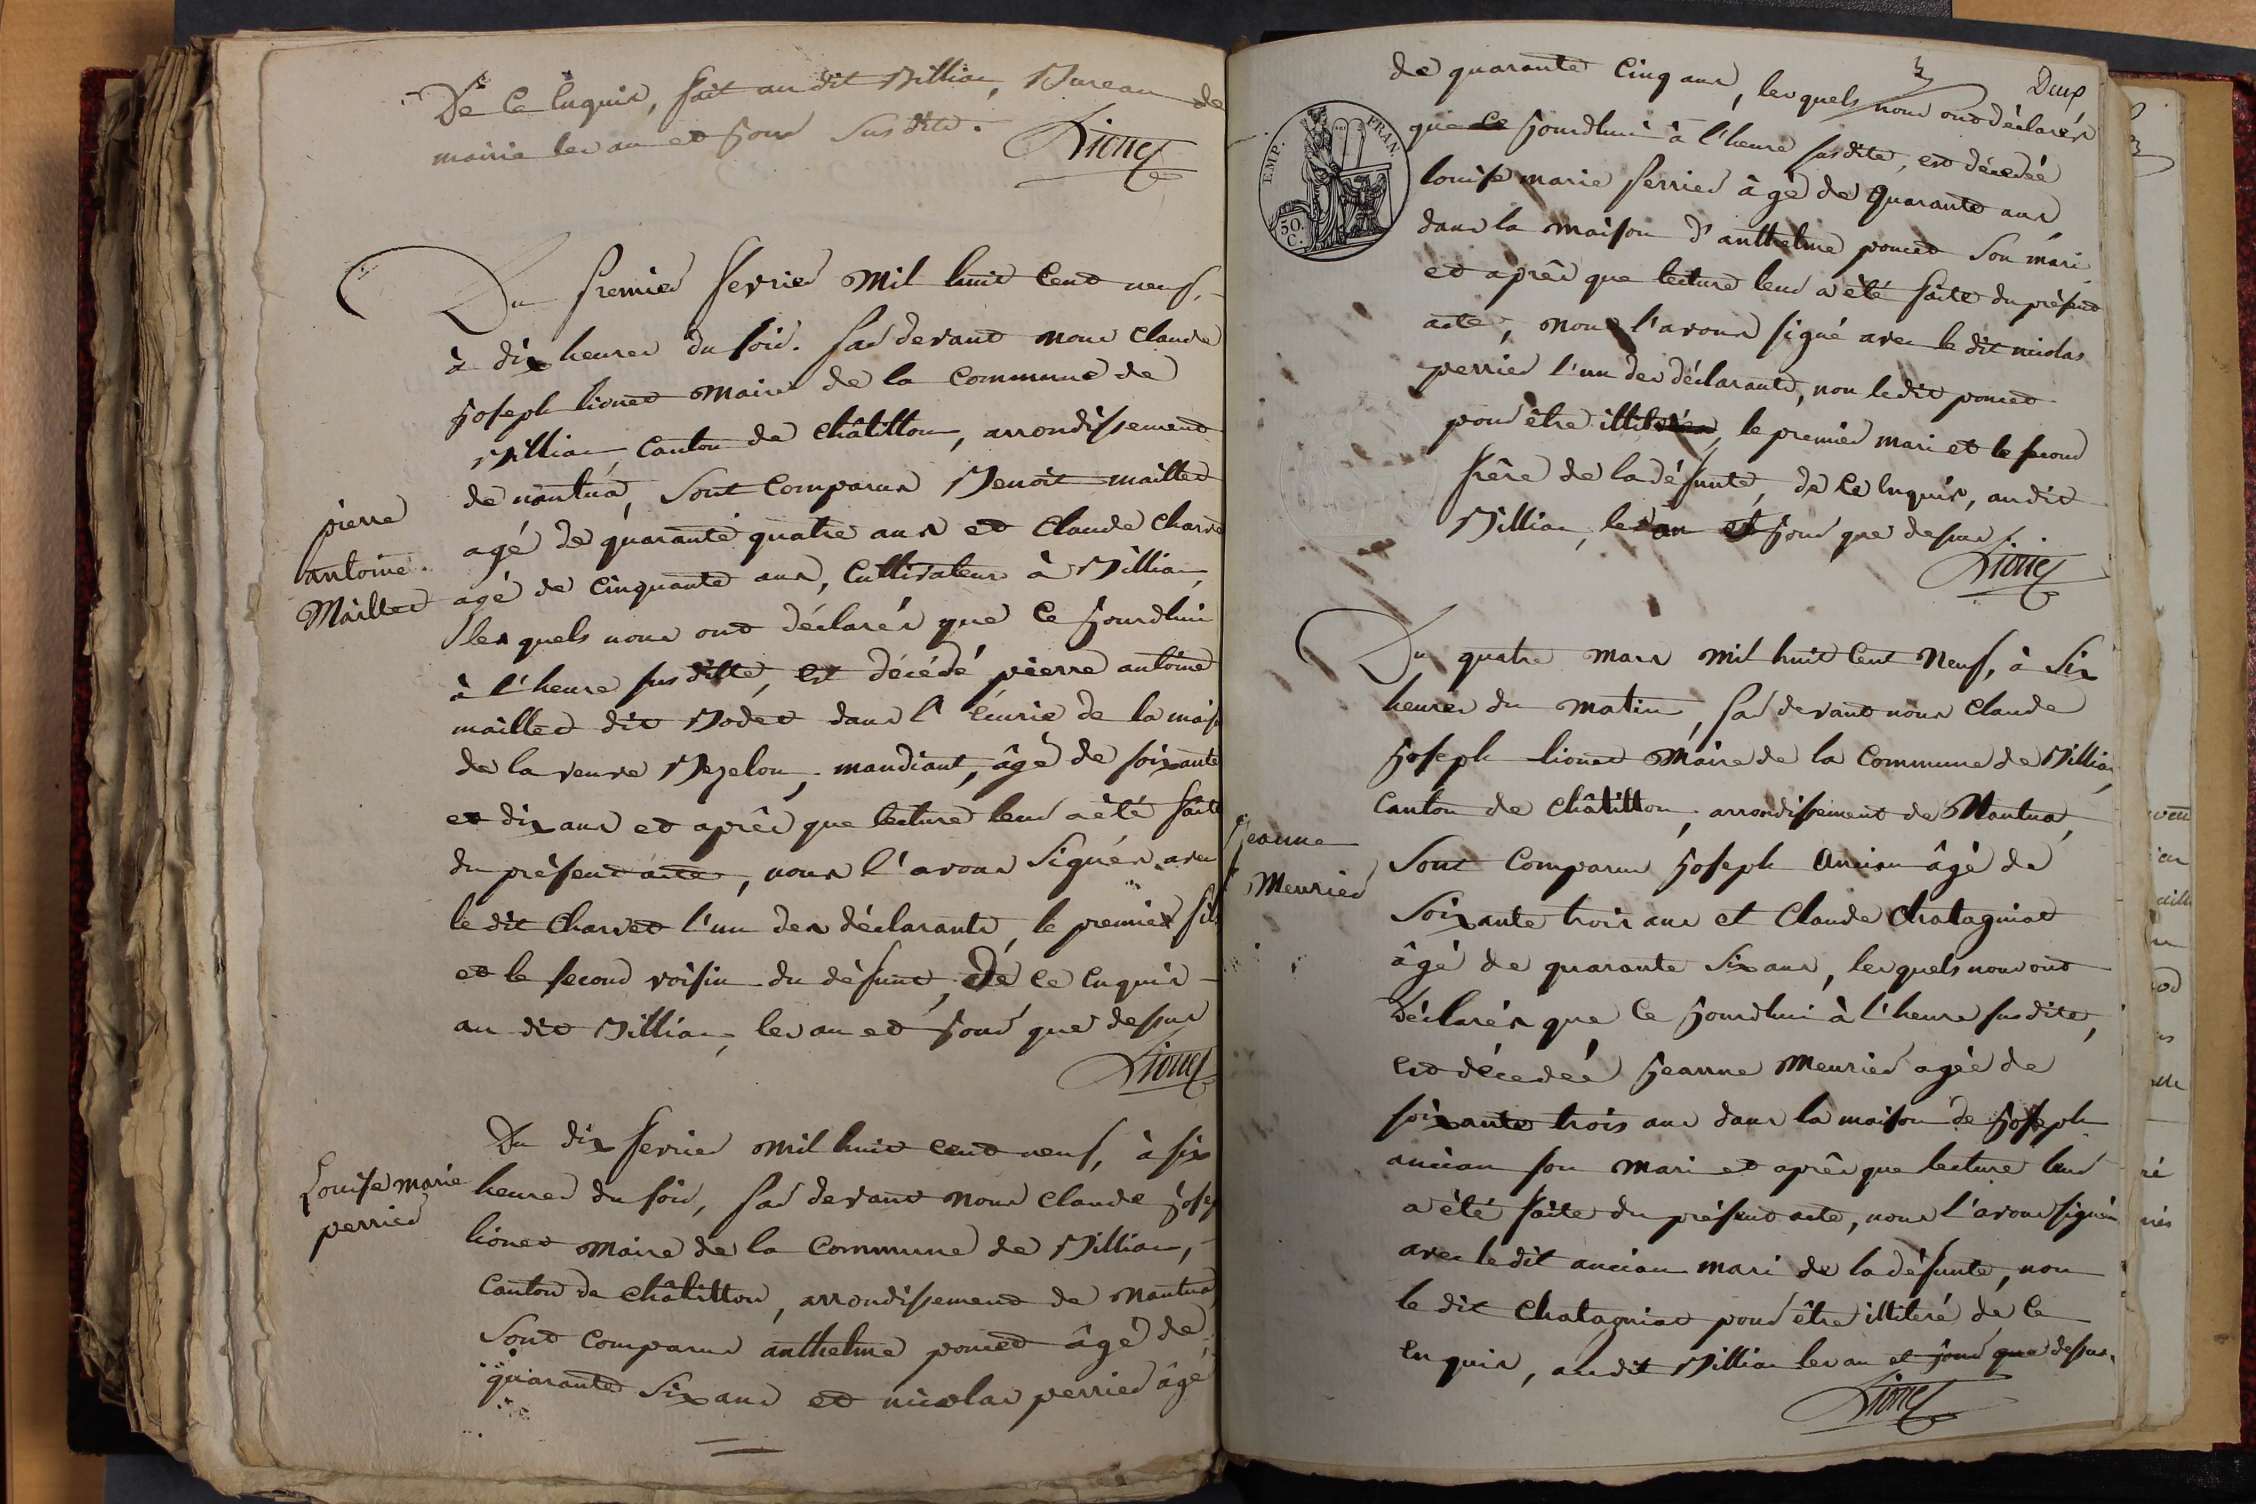 De Ce Enquis, fait au dit Billiat, Bureau de
mairie les an et Jour Susdits.
Lionet
Du premier fevrier Mil huit Cent neuf,
à dix heures du soir. Par devant nous Claude
Joseph lionet Maire de la Commune de
Billiat, Canton de Châtillon, arrondissement
de nantua, Sont Comparus Benoit maillet
agé de quarante quatre ans et Claude Charvet
agé de Cinquante ans, Cultivateurs à Billiat,
les quels nous ont déclarés que Ce Jourdhui
à l'heure sus ditte, est décédé pierre antoine
maillet dit Bodet dans l'écurie de la mais
de la veuve, mandiant, âgé de soixante
et dix ans et après que lecture leur a été faite
du présent acte, nous l'avons Signés avec
le dit Charvet l'un des déclarants, le premier fils
et le second voisin du défunt, De Ce Enquis
au dit Billiat, les an et Jour que dessus
Lionet
pierre
antoine
Maillet
Du dix fevrier mil huit cent neuf, à six
heures du soir, Par devant nous Claude Josep
lionet Maire de la Commune de Billiat,
Canton de Châtillon, arrondissement de Nantua
Sont Comparus anthelme poncet âgé de
quarante Six ans et nicolas perrier âgé
Louise marie
perrier
Deux
de quarante Cinq ans, les quels nous ont déclarés
que Ce Jourdhui à l'heure susdite, est décédée
louise marie perrier âgé de Quarante ans
dans la maison d'anthelme poncet Son mari
et après que lecture leur a été faite du présent
acte, nous l'avons signé avec le dit nicolas
perrier l'un des déclarants, non ledit poncet
pour être, le premier mari et le second
frère de la défunte, de Ce Enquis, au dit
Billiat, les an et Jour que dessus
Lionet
EMP. FRAN.
50.
C.
Du quatre mars mil huit Cent Neuf, à Six
heures du matin, Par devant nous Claude
Joseph lionet Maire de la Commune de Billiat,
Canton de Châtillon, arrondissement de Nantua,
Sont Comparus Joseph Ancian âgé de
Soixante trois ans et Claude Chatagniat
âgé de quarante Six ans, les quels nous ont
déclarés que Ce Jourdhui à l'heure sus dite,
est décédée Jeanne Meurier agée de
soixante trois ans dans la maison de Joseph
ancian son mari et après que lecture leur
a été faite du présent acte, nous l'avons signés
avec le dit ancian mari de la défunte, non
le dit Chatagniat pour être illiteré de Ce
Enquis, audit Billiat les an et jour que dessus.
Lionet
Jeanne
Meurier